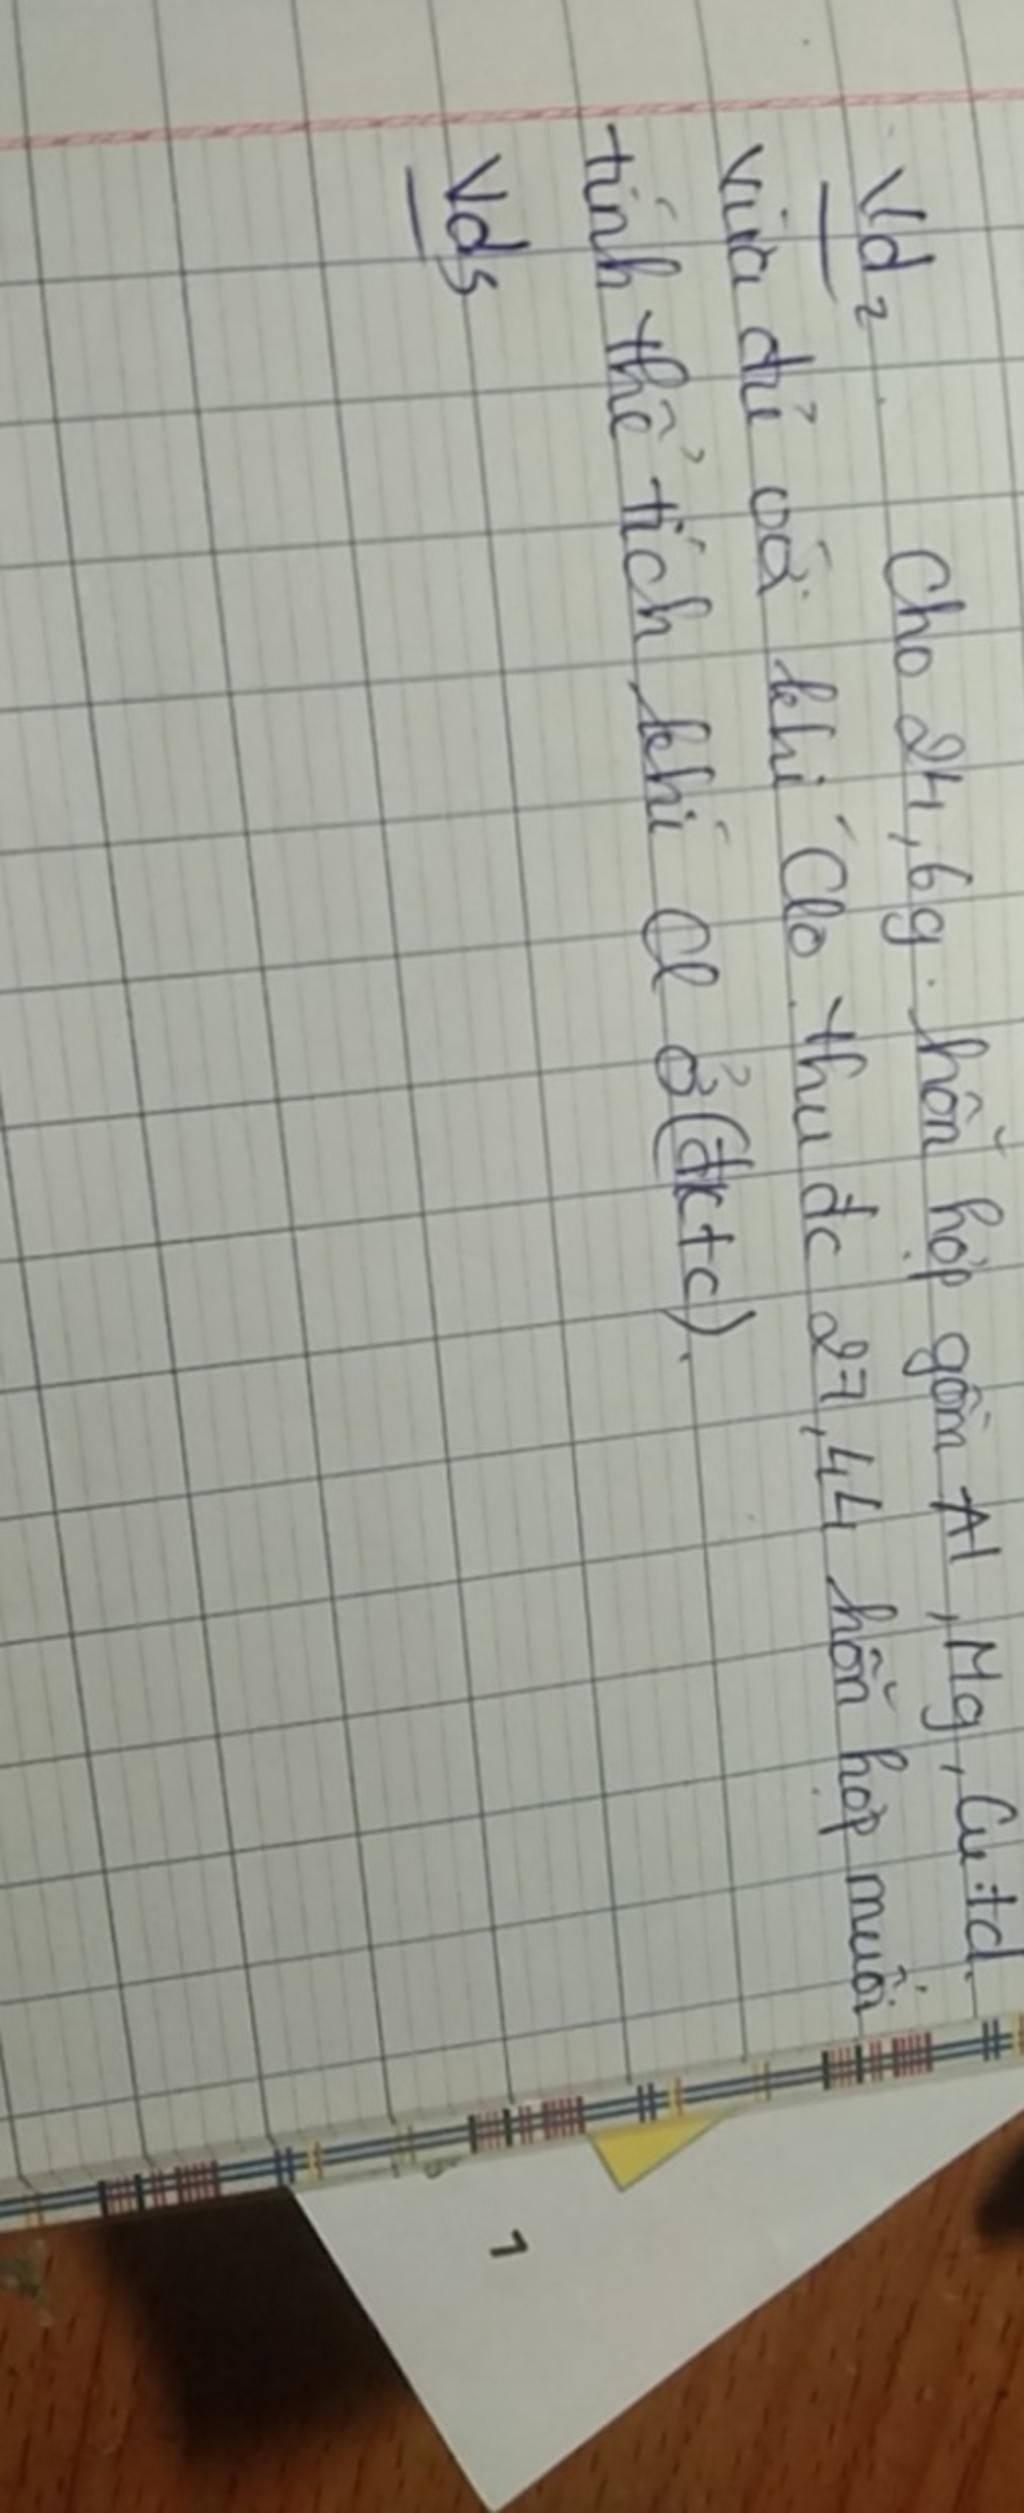 Vd2. Cho 24,6g hỗn hợp gồm Al, Mg, Cu td
vừa đủ với khí Clo thu đc 27,44 hỗn hợp muối
tính thể tích khí Cl ở (đktc).
Vd3
1